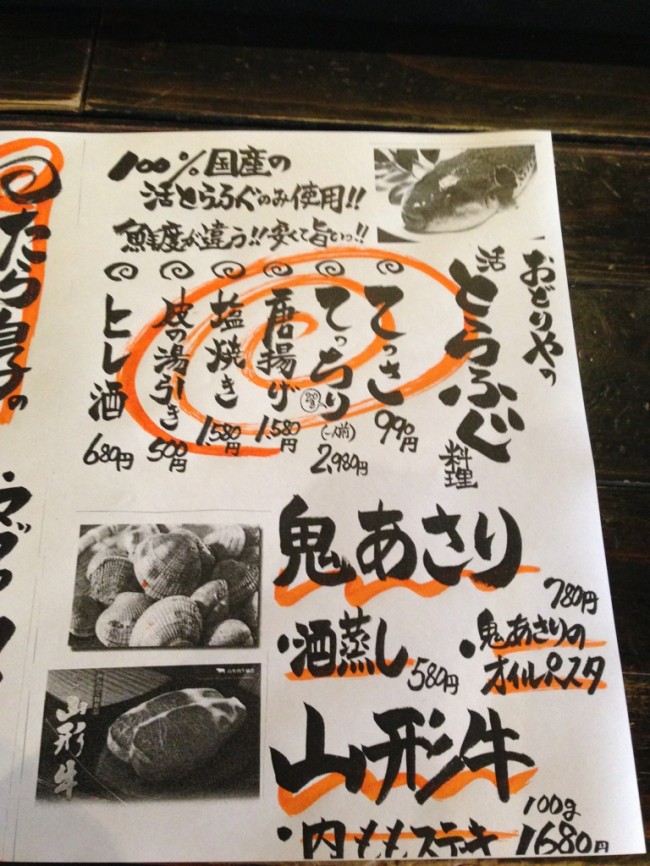 100%国産の
活とらふぐのみ使用!!
鮮度が違う!!安くて旨いっ!!
おどりやの
活とらふぐ料理
てっさ 990円
てっちり (一人前) 2,980円
唐揚げ 1,580円
塩焼き 1,580円
皮の湯引き 500円
ヒレ酒 680円
鬼あさり
・酒蒸し 580円
・鬼あさりの
オイルパスタ 780円
山形牛
100g
・内ももステーキ 1680円
山形牛
たら白子の